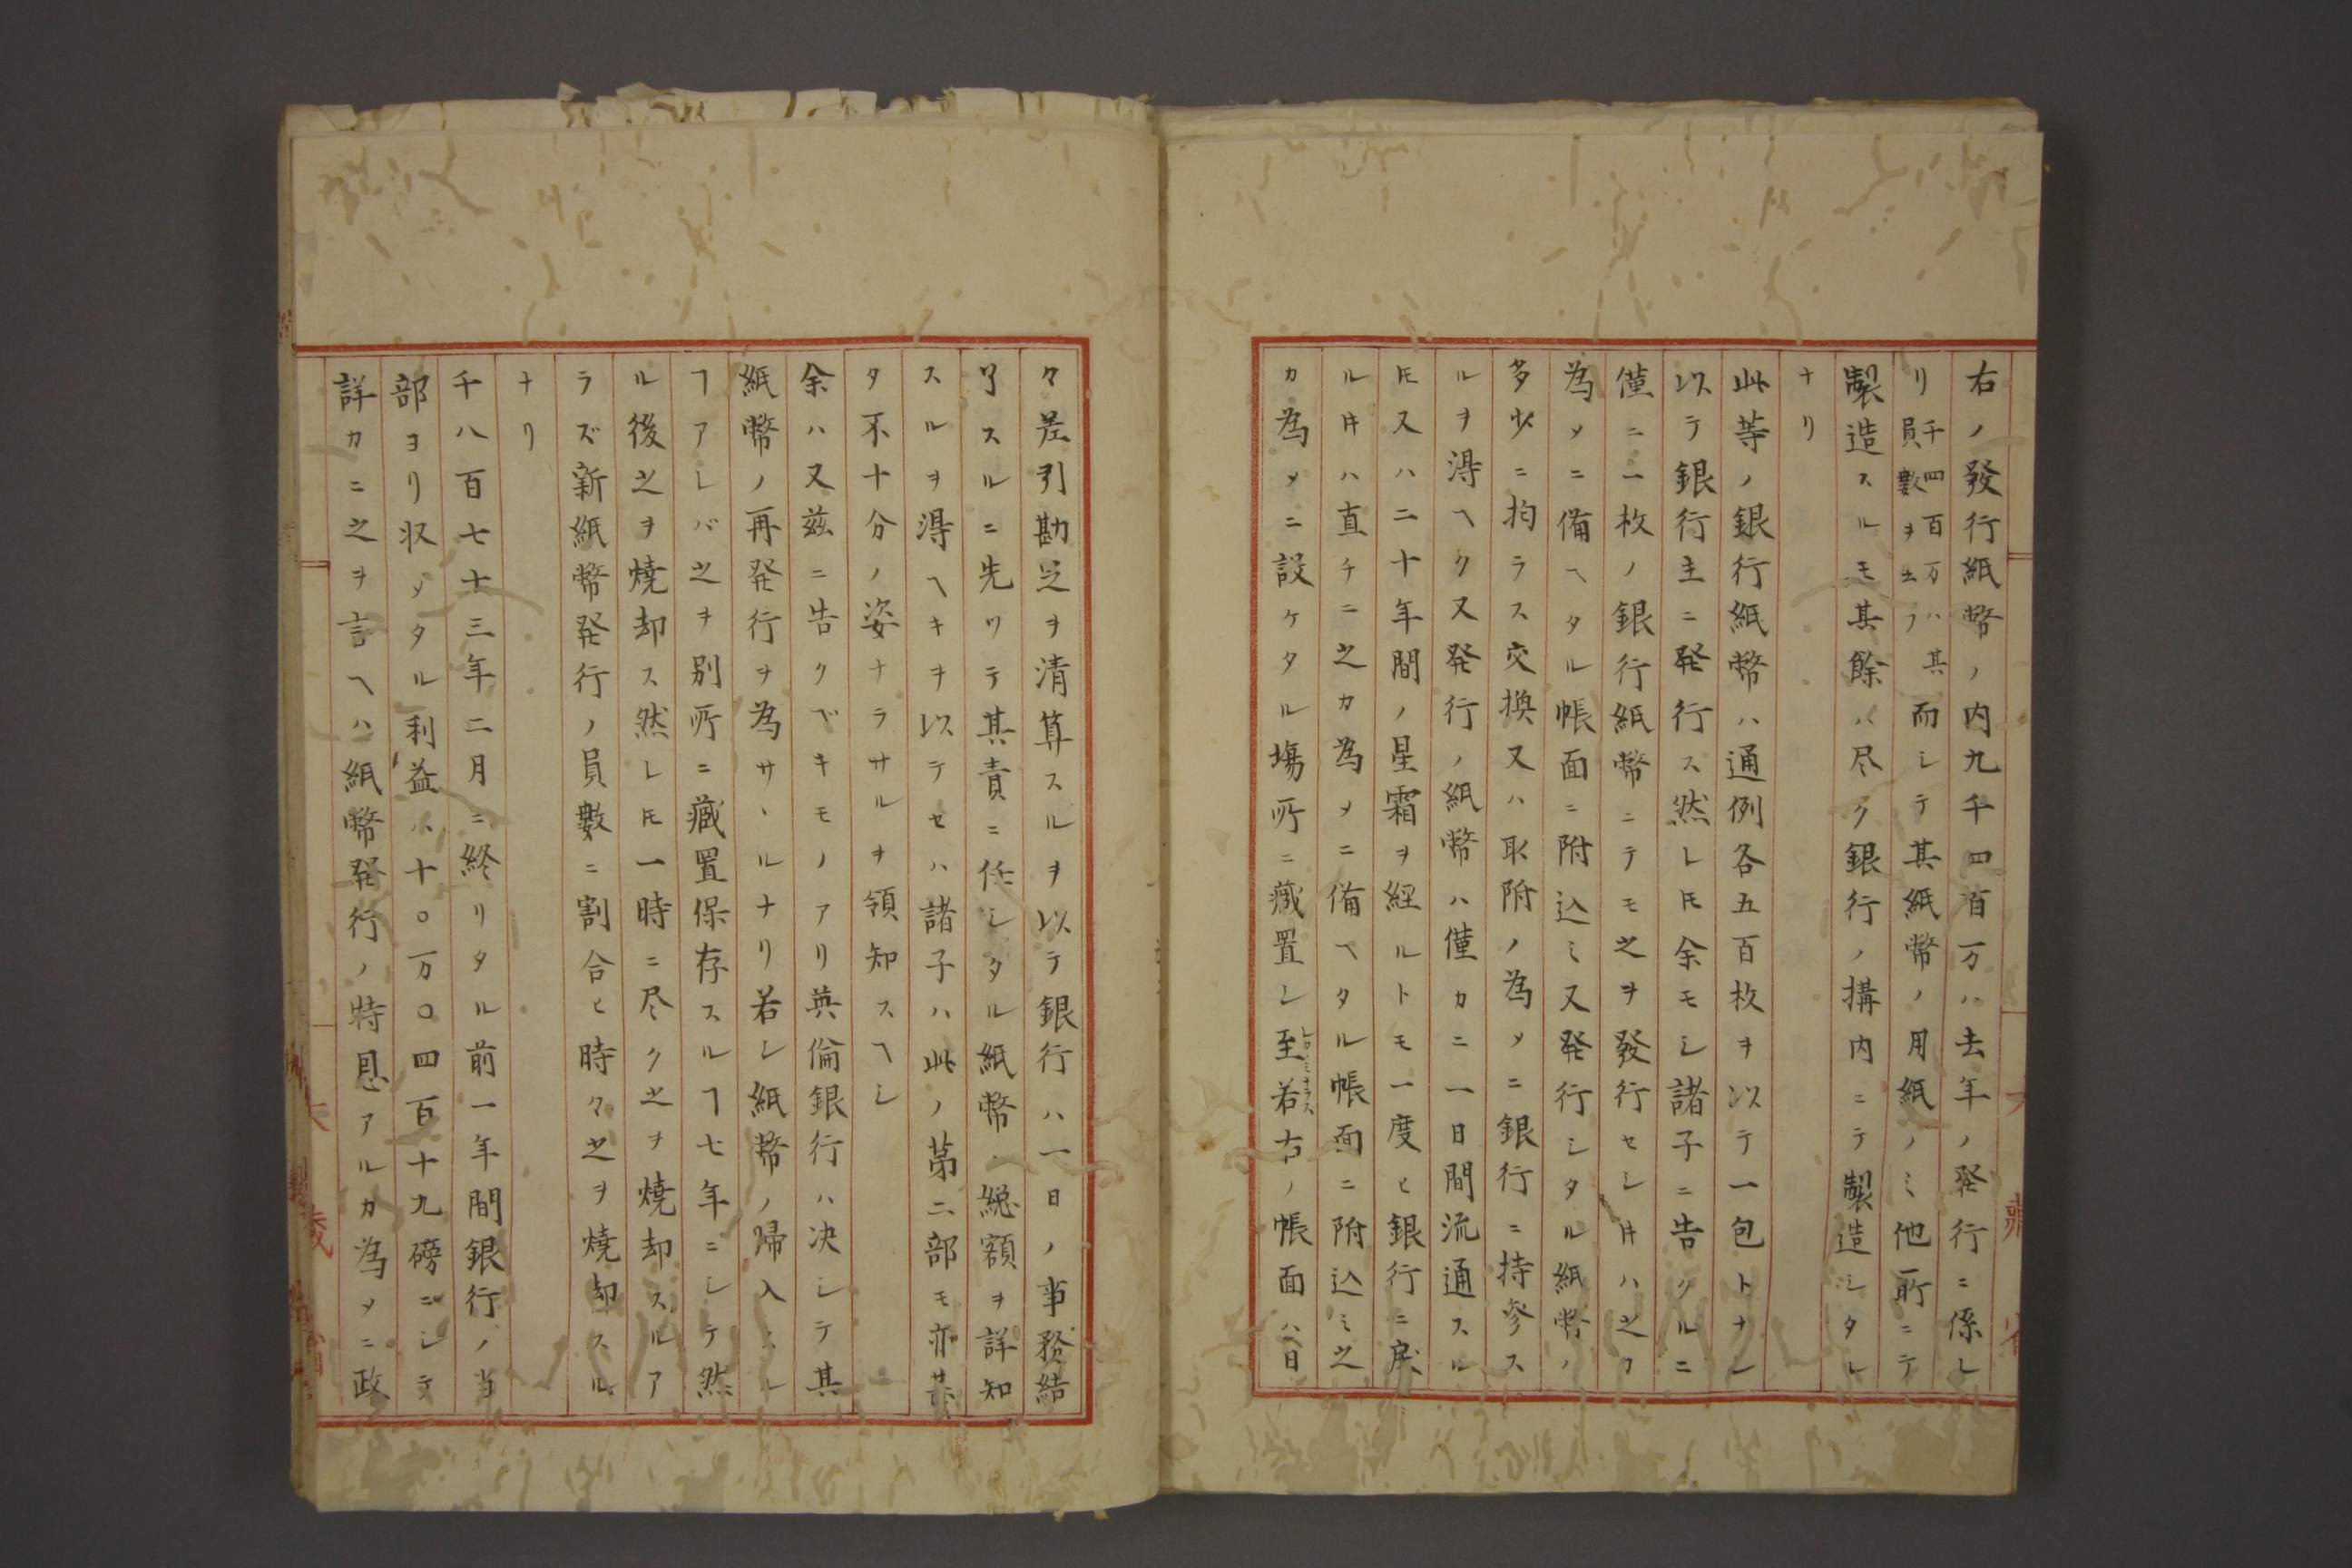 右ノ發行紙幣ノ内九千四百万ハ去年ノ発行ニ係レ
リ千四百万ハ其員數ヲ去フ而シテ其紙幣ノ用紙ノミ他所ニテ
製造スルモ其餘ハ尽ク銀行ノ搆内ニテ製造シタル
ナリ
此等ノ銀行紙幣ハ通例各五百枚ヲ以テ一包トナシ
以テ銀行主ニ発行ス然レ𪜈余モシ諸子ニ告クルニ
僅ニ一枚ノ銀行紙幣ニテモ之ヲ發行セシ𪜈ハ之カ
為メニ備ヘタル帳面ニ附込ミ又発行シタル紙幣ノ
多少ニ拘ラス交換又ハ取附ノ為メニ銀行ニ持参ス
ルヲ得ヘク又発行ノ紙幣ハ僅カニ一日間流通スル
𪜈又ハ二十年間ノ星霜ヲ経ルトモ一度ヒ銀行ニ戻
ル寸ハ直チニ之カ為メニ備ヘタル帳面ニ附込ミ之
カ為メニ設ケタル塲所ニ藏置シ至若右ノ帳面ハ日
々差引勘定ヲ清算スルヲ以テ銀行ハ一日ノ事務結
了スルニ先ワテ其責ニ任シタル紙幣ノ総額ヲ詳知
スルヲ得ヘキヲ以テセハ諸子ハ此ノ第二部モ亦甚
タ不十分ノ姿ナラサルヲ領知スヘシ
余ハ又茲ニ告クベキモノアリ英倫銀行ハ决シテ其
紙幣ノ再発行ヲ為サヽルナリ若シ紙幣ノ歸入ミル
ヿアレバ之ヲ別所ニ藏置保存スルヿ七年ニシテ然
ル後之ヲ燒却ス然レ𪜈一時ニ尽ク之ヲ燒却スルア
ラズ新紙幣発行ノ員數ニ割合ヒ時々之ヲ燒却スル
ナリ
千八百七十三年二月ニ終リタル前一年間銀行ノ当
部ヨリ収メタル利益ハ十〇万〇四百十九磅ニシテ
詳カニ之ヲ言ヘハ紙幣発行ノ特恩アルカ為メニ政